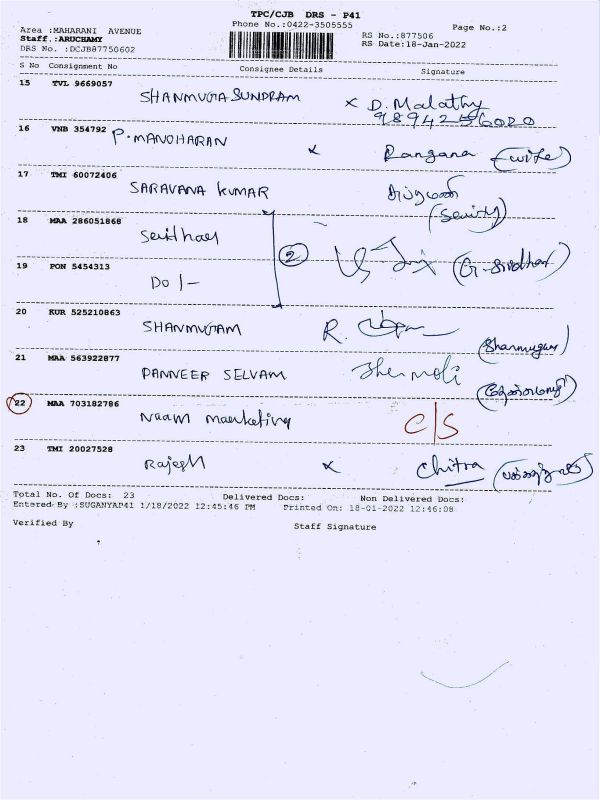 TPC/CJB DRS - P41
Area :MAHARANI AVENUE
Phone No.:0422-3505555
Page No.:2
Staff.:ARUCHAMY
RS No.:877506
DRS No. :DCJB87750602
RS Date:18-Jan-2022
S No Consignment No Consignee Details Signature
15 TVL 9669057 SHANMUGA SUNDRAM x D. Malathy
98942 56020
16 VNB 354792 P. MANOHARAN x Rangana (wife)
17 TMI 60072406 SARAVANA KUMAR
18 MAA 286051868 2
19 PON 5454313 DO /-
20 KUR 525210863 SHANMUGAM R. (Shanmugam)
21 MAA 563922877 PANNEER SELVAM Thenmoli
22 MAA 703182786 Naam Marketing C/S
23 TMI 20027528 Rajesh x Chitra
Total No. Of Docs: 23 Delivered Docs: Non Delivered Docs:
Entered By :SUGANYAP41 1/18/2022 12:45:46 PM Printed On: 18-01-2022 12:46:08
Verified By Staff Signature